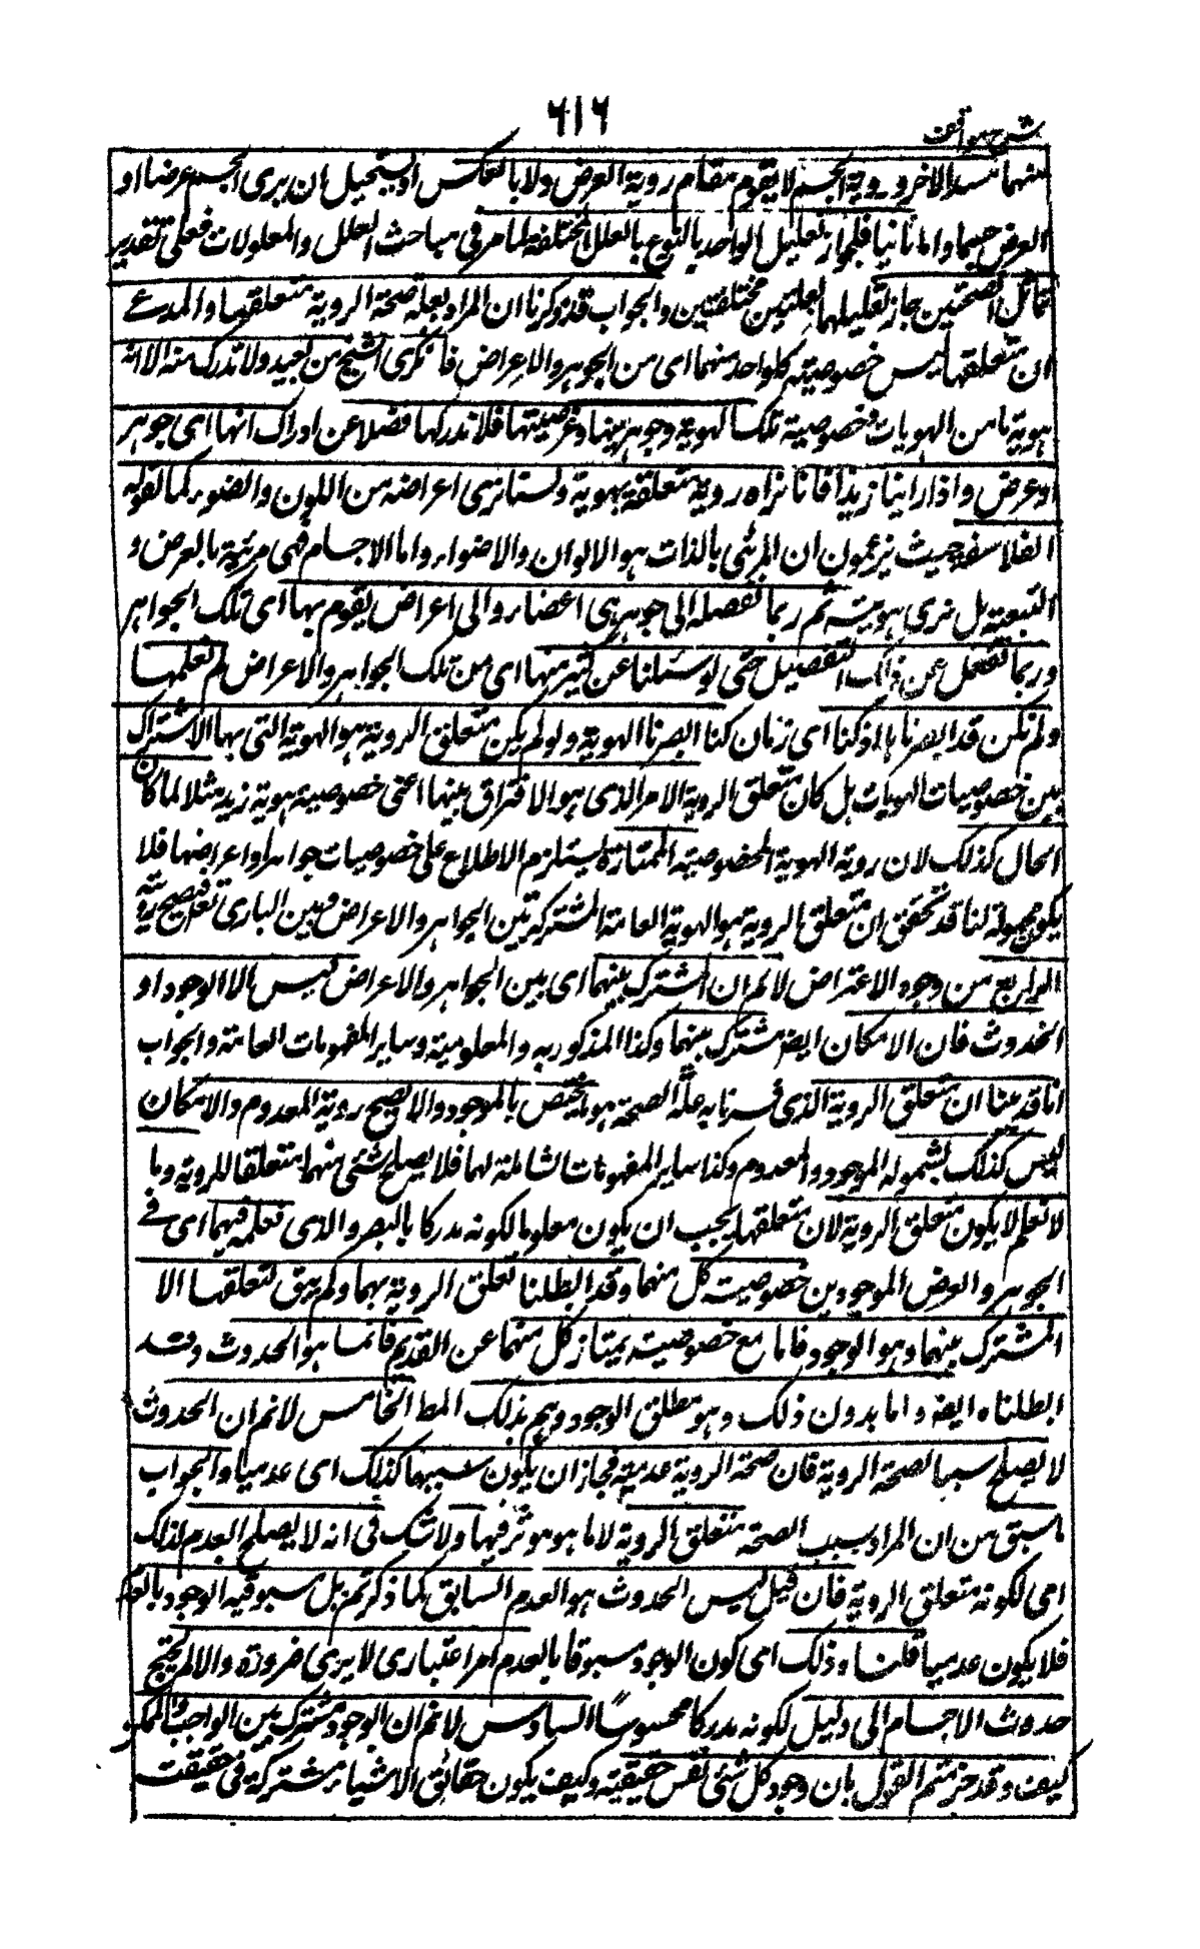 ٦١٦
شرح مواقف
منهما مسد الاخر وروية الجسم لا يقوم مقام روية العرض ولا بالعكس اذ يستحيل ان يرى الجسم عرضا او
العرض جسما واما ثانيا فلجواز تعليل الواحد بالنوع بالعلل المختلفة لما مر في مباحث العلل والمعلولات فعلى تقدير
تماثل الصحتين جاز تعليلهما بعلتين مختلفتين والجواب قد ذكرنا ان المراد بعلة صحة الروية متعلقها والمدعى
ان متعلقها ليس خصوصية كلواحد منهما اى من الجوهر والاعراض فانا نرى الشبح من بعيد ولا ندرك منه الا انه
هوية ما من الهويات وخصوصية تلك الهوية وجوهريتها وعرضيتها فلا ندركها فضلا عن ادراك انها اى جوهر
او عرض واذا راينا زيدا فانا نراه روية متعلقة بهوية ولسنا نرى اعراضه من اللون والضوء كما تقوله
الفلاسفة حيث يزعمون ان المرئى بالذات هو الالوان والاضواء واما الاجسام فهى مرئية بالعرض و
التبعية بل نرى هوية ثم ربما نفصله الى جوهر هى اعضاء والى اعراض يقوم بها اى تلك الجواهر
وربما نغفل عن ذلك التفصيل حتى لو سئلنا عن كثير منها اى من تلك الجواهر والاعراض لم نعلمها
ولم نكن قد ابصرناها اذ كنا اى زمان كنا ابصرنا الهوية ولو لم يكن متعلق الروية هو الهوية التى بها الاشتراك
بين خصوصيات الهويات بل كان متعلق الروية الامر الذى هو الافتراق بينها اعنى خصوصية هوية زيد مثلا لما كان
الحال كذلك لان روية الهوية المخصوصية الممتازة يستلزم الاطلاع على خصوصيات جواهرها واعراضها فلا
يكون مجهولة لنا قد تحقق ان متعلق الروية هو الهوية العامة المشتركة بين الجواهر والاعراض وبين البارى تعالى فيصح رويته
الرابع من وجوه الاعتراض لا نم ان المشترك بينهما اى بين الجواهر والاعراض ليس الا الوجود او
الحدوث فان الامكان ايضا مشترك بينهما وكذا المذكورية والمعلومية وساير المفهومات العامة والجواب
انا قد بينا ان متعلق الروية الذى فسرنا به علة الصحة هو ما يختص بالموجود والا لصح روية المعدوم والامكان
ليس كذلك لشموله الموجود والمعدوم وكذا ساير المفهومات الشاملة لهما فلا يصلح شئى منهما متعلقا للروية وما
لا نعلم لا يكون متعلق الروية لان متعلقها يجب ان يكون معلوما لكونه مدركا بالبصر والذى نعلمه فيهما اى فى
الجوهر والعرض الموجودين خصوصية كل منهما وقد ابطلنا تعلق الروية بهما ولم يبق لتعلقها الا
المشترك بينهما وهو الوجود فاما مع خصوصية يمتاز كل منهما عن القديم فانما هو الحدوث وقد
ابطلناه ايضا واما بدون ذلك وهو مطلق الوجود ويتم بذلك المط الخامس لا نم ان الحدوث
لا يصلح سببا لصحة الروية فان صحة الروية عدمية فجاز ان يكون سببها كذلك اى عدميا والجواب
ما سبق من ان المراد بسبب الصحة متعلق الروية لا ما هو موثر فيها ولا شك فى انه لا يصلح العدم لذلك
اى لكونه متعلق الروية فان قيل ليس الحدوث هو العدم السابق كما ذكرتم بل مسبوقية الوجود بالعدم
فلا يكون عدميا قلنا وذلك اى كون الوجود مسبوقا بالعدم امر اعتبارى لا يرى ضرورة والا لم يحتج
حدوث الاجسام الى دليل لكونه مدركا محسوسا السادس لا نم ان الوجود مشترك بين الواجب والممكن
كيف وقد جزمتم القول بان وجود كل شئى نفس حقيقية وكيف يكون حقائق الاشياء مشتركة فى حقيقت